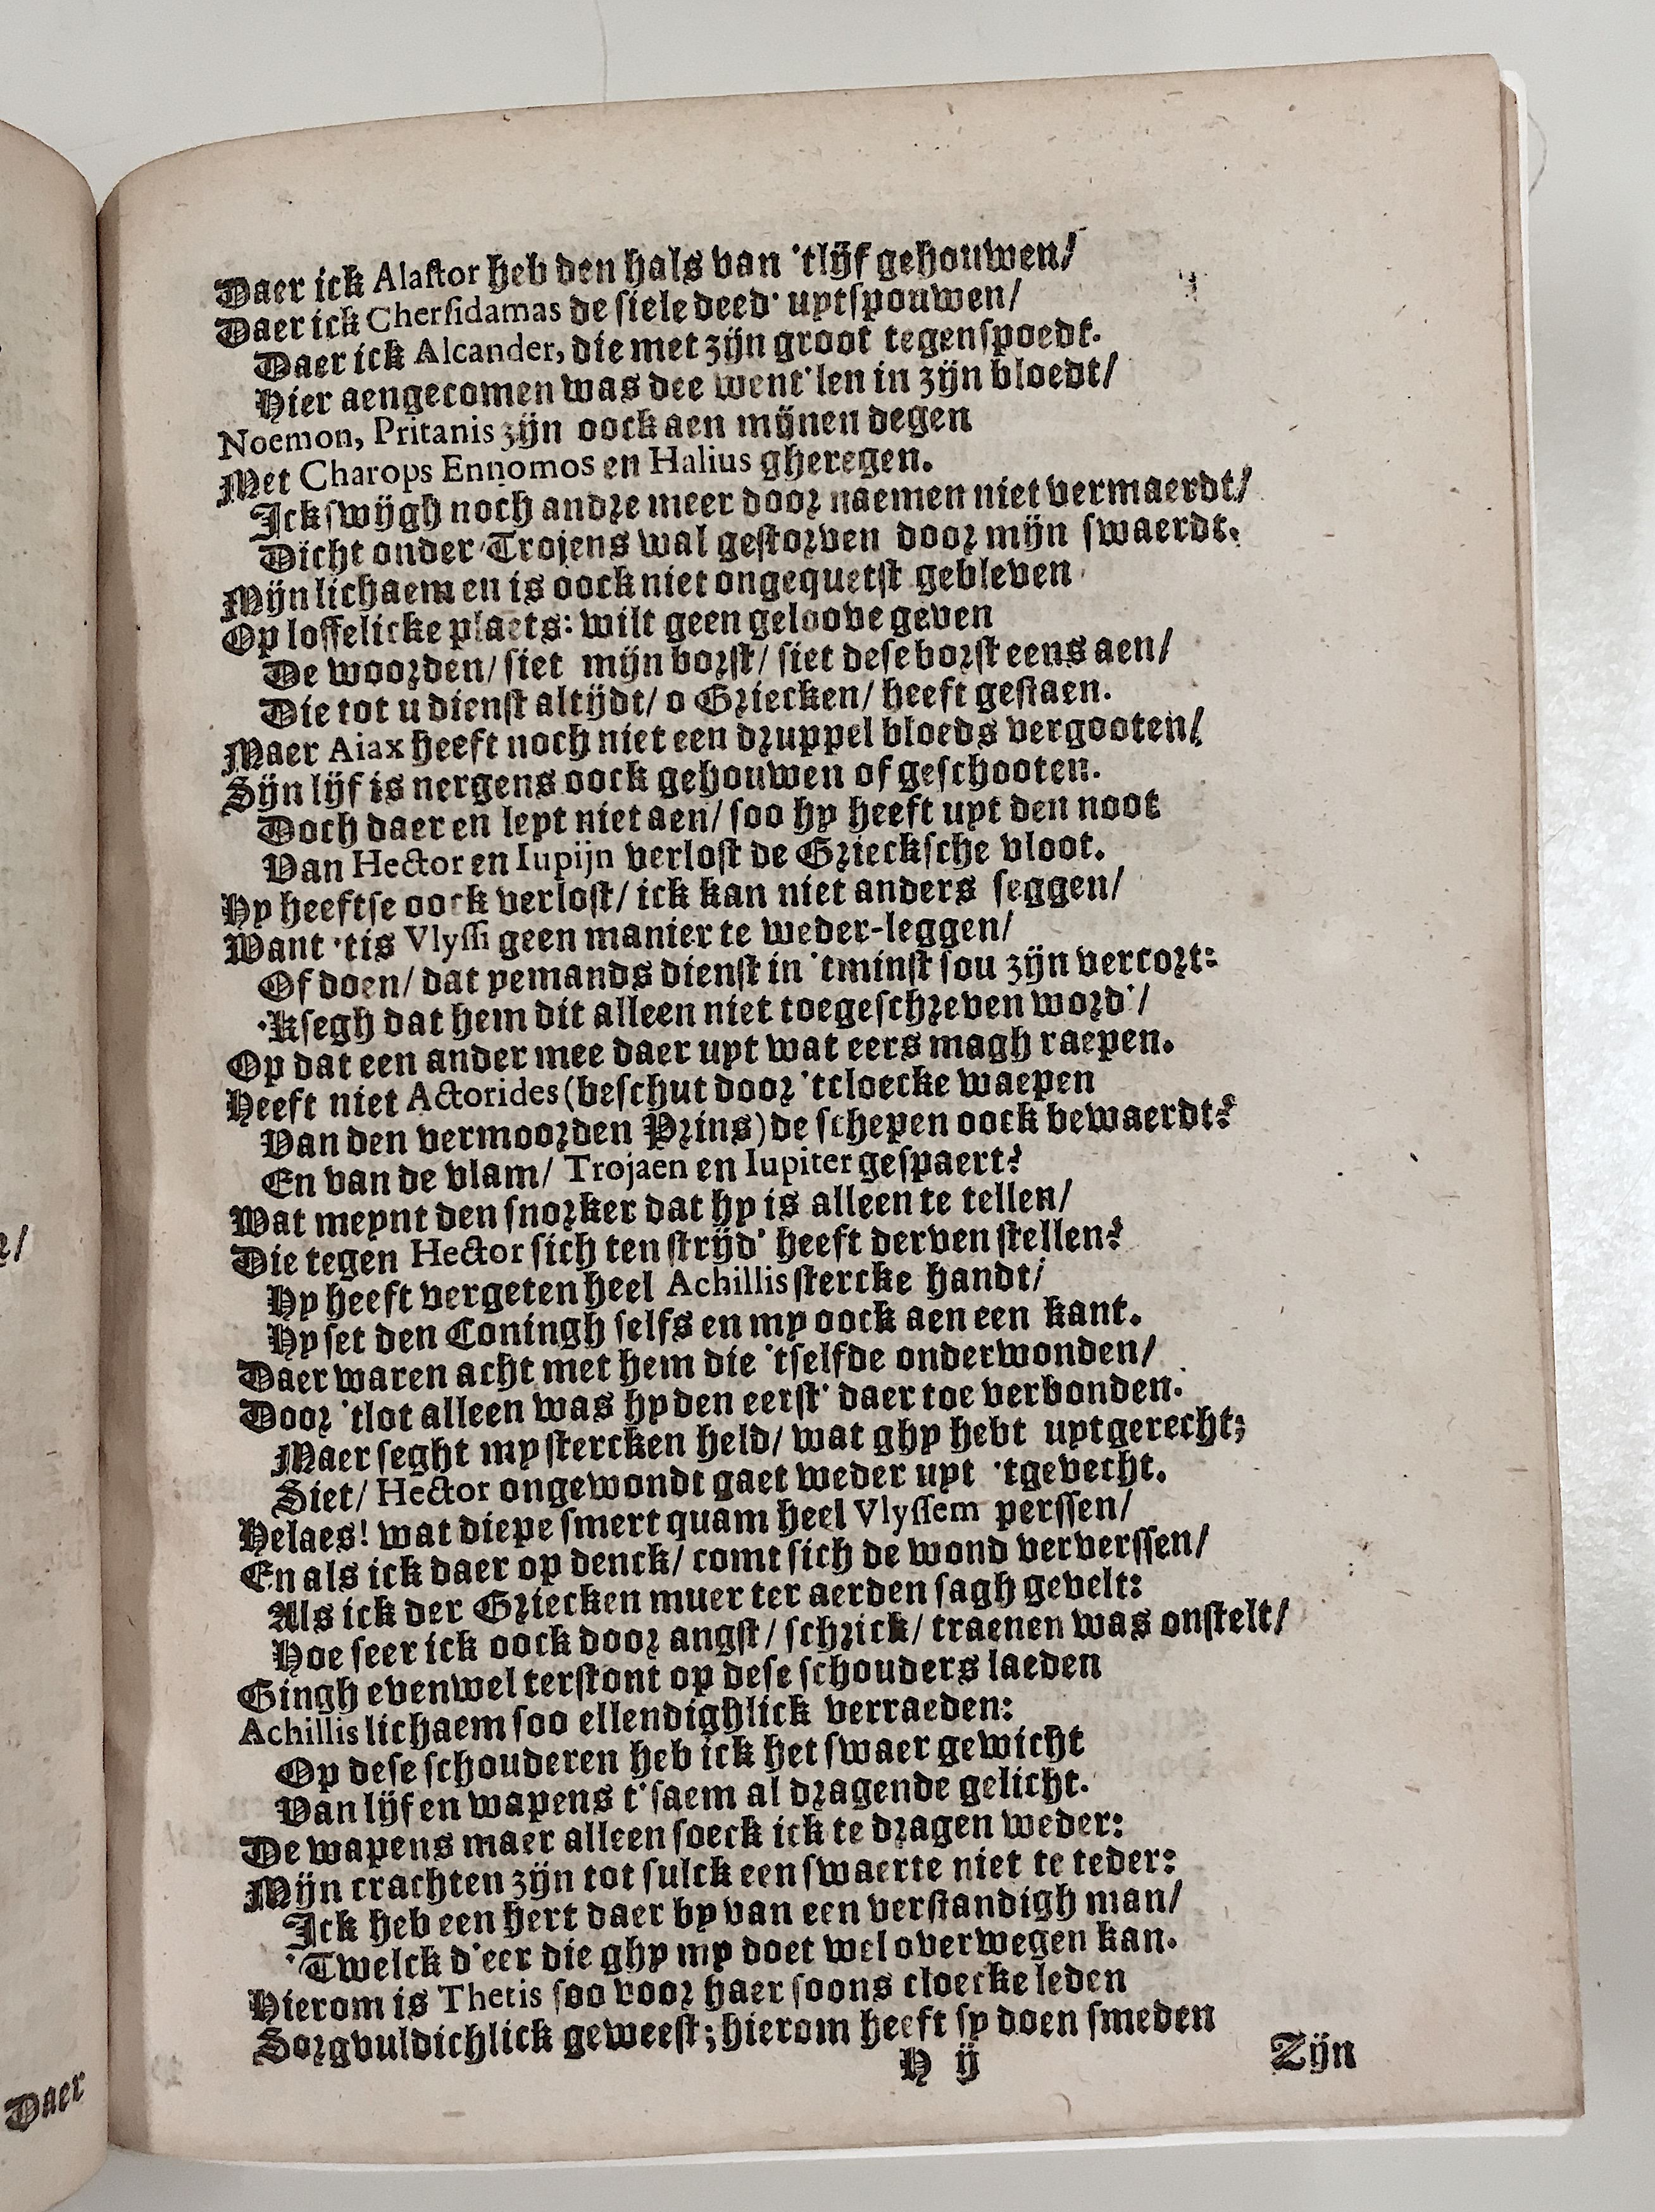 Daer ick Alaſtor heb den hals van 'tlijf gehouwen/
Daer ick Cherſidamas de ſiele deed' uytſpouwen/
Daer ick Alcander, die met zijn groot tegenſpoedt.
Hier aengecomen was dee went'len in zijn bloedt/
Noemon, Pritanis zijn oock aen mijnen degen
Met Charops Ennomos en Halius gheregen.
Ick ſwijgh noch andre meer door naemen niet vermaerdt/
Dicht onder Trojens wal geſtorven door mijn ſwaerdt.
Mijn lichaem en is oock niet ongequetſt gebleven
Op loffelicke plaets: wilt geen geloove geven
De woorden/ ſiet mijn borſt/ ſiet deſe borſt eens aen/
Die tot u dienſt altijdt/ o Griecken/ heeft geſtaen.
Maer Aiax heeft noch niet een druppel bloeds vergooten/
Sijn lijf is nergens oock gehouwen of geſchooten.
Doch daer en leyt niet aen/ ſoo hy heeft uyt den noot
Van Hector en Iupijn verloſt de Grieckſche vloot.
Hy heeftſe oock verloſt/ ick kan niet anders ſeggen/
Want 'tis Vlyſſi geen manier te weder-leggen/
Of doen/ dat yemands dienſt in 'tminſt ſou zijn vercort:
'Kſegh dat hem dit alleen niet toegeſchreven word'/
Op dat een ander mee daer uyt wat eers magh raepen.
Heeft niet Actorides (beſchut door 'tcloecke waepen
Van den vermoorden Prins) de ſchepen oock bewaerdt?
En van de vlam/ Trojaen en Iupiter geſpaert?
Wat meynt den ſnorker dat hy is alleen te tellen/
Die tegen Hector ſich ten ſtrijd' heeft derven ſtellen?
Hy heeft vergeten heel Achillis ſtercke handt/
Hy ſet den Coningh ſelfs en my oock aen een kant.
Daer waren acht met hem die 'tſelfde onderwonden/
Door 'tlot alleen was hy den eerſt' daer toe verbonden.
Maer ſeght my ſtercken held/ wat ghy hebt uytgerecht;
Siet/ Hector ongewondt gaet weder uyt 'tgevecht.
Helaes! wat diepe ſmert quam heel Vlyſſem perſſen/
En als ick daer op denck/ comt ſich de wond ververſſen/
Als ick der Griecken muer ter aerden ſagh gevelt:
Hoe ſeer ick oock door angſt/ ſchrick/ traenen was onſtelt/
Gingh evenwel terſtont op deſe ſchouders laeden
Achillis lichaem ſoo ellendighlick verraeden:
Op deſe ſchouderen heb ick het ſwaer gewicht
Van lijf en wapens t'ſaem al dragende gelicht.
De wapens maer alleen ſoeck ick te dragen weder:
Mijn crachten zijn tot ſulck een ſwaerte niet te teder:
Ick heb een hert daer by van een verſtandigh man/
'Twelck d'eer die ghy my doet wel overwegen kan.
Hierom is Thetis ſoo voor haer ſoons cloecke leden
Sorgvuldichlick geweeſt; hierom heeft ſy doen ſmeden
H ij
Zijn
Daer